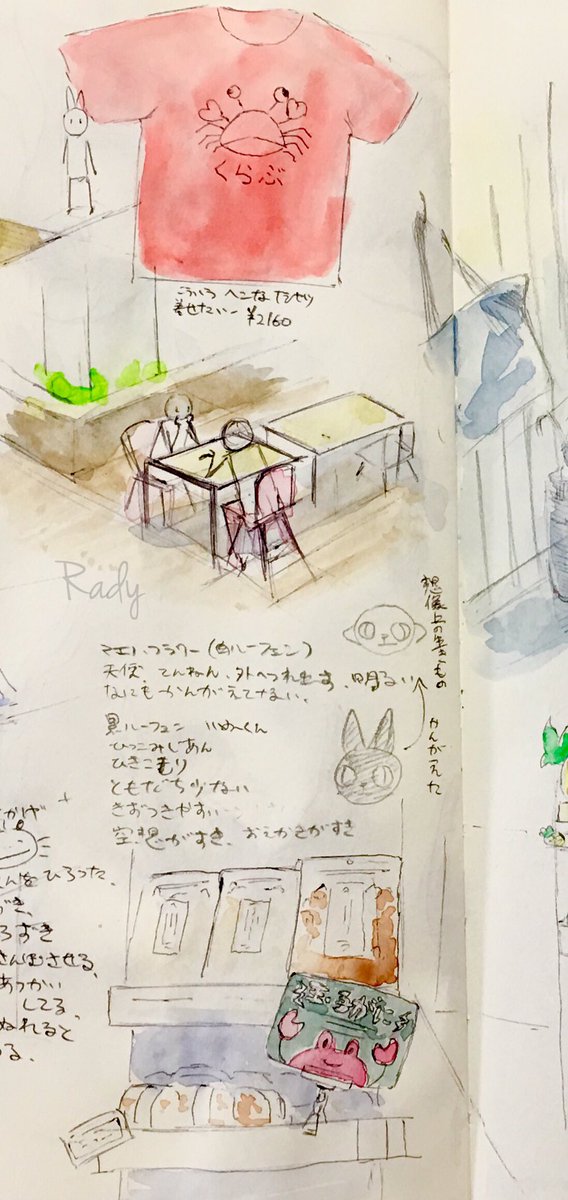 くらぶ
こうくろ へンな Tシャツ
着せたいー ¥2160
Rady
想像上の生きもの
かんがえた
マエル・フラワー(白ルーフェン)
天使、てんねん、外へつれ出す、明るい
なにもかんがえてない、
黒ルーフェン いぬーくん
ひっこみじあん
ひきこもり
ともだち少ない
きずつきやすい
空想がすき、おえかきがすき
かげ
んをひろった、
ずき、
ろずき
さんぽさせる、
あつかい
してる、
ぬれると
る、